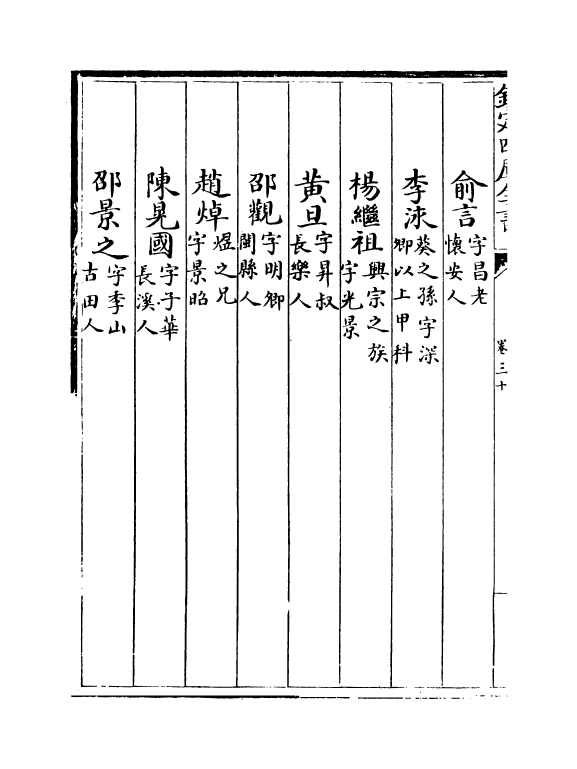 欽定四庫全書
卷三十
俞言字昌老懷安人
李泳葵之孫字深卿以上甲科
楊繼祖興宗之族字光景
黃旦字昇叔長樂人
邵觀字明卿閩縣人
趙焯煜之兄字景昭
陳晃國字子華長溪人
邵景之字季山古田人